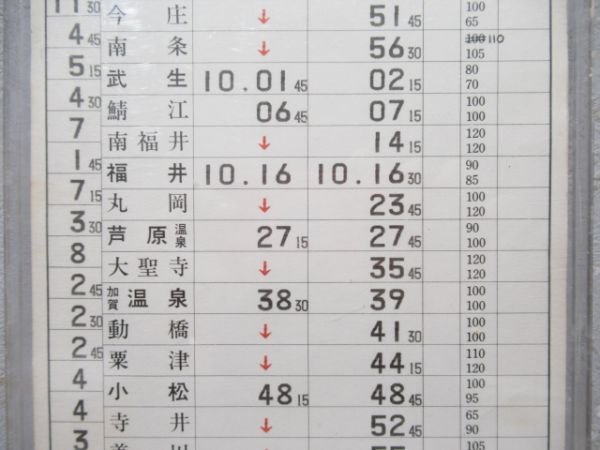 11 30 今庄 ↓ 51 45 100 65
4 45 南条 ↓ 56 30 100 110 105
5 15 武生 10.01 45 02 15 80 70
4 30 鯖江 06 45 07 15 100 100
7 南福井 ↓ 14 15 120 120
1 45 福井 10.16 10.16 30 90 85
7 15 丸岡 ↓ 23 45 100 120
3 30 芦原温泉 27 15 27 45 90 100
8 大聖寺 ↓ 35 45 120 120
2 45 加賀温泉 38 30 39 100 100
2 30 動橋 ↓ 41 30 100 100
2 45 粟津 ↓ 44 15 110 120
4 小松 48 15 48 45 100 95
4 寺井 ↓ 52 45 65 90
3 105